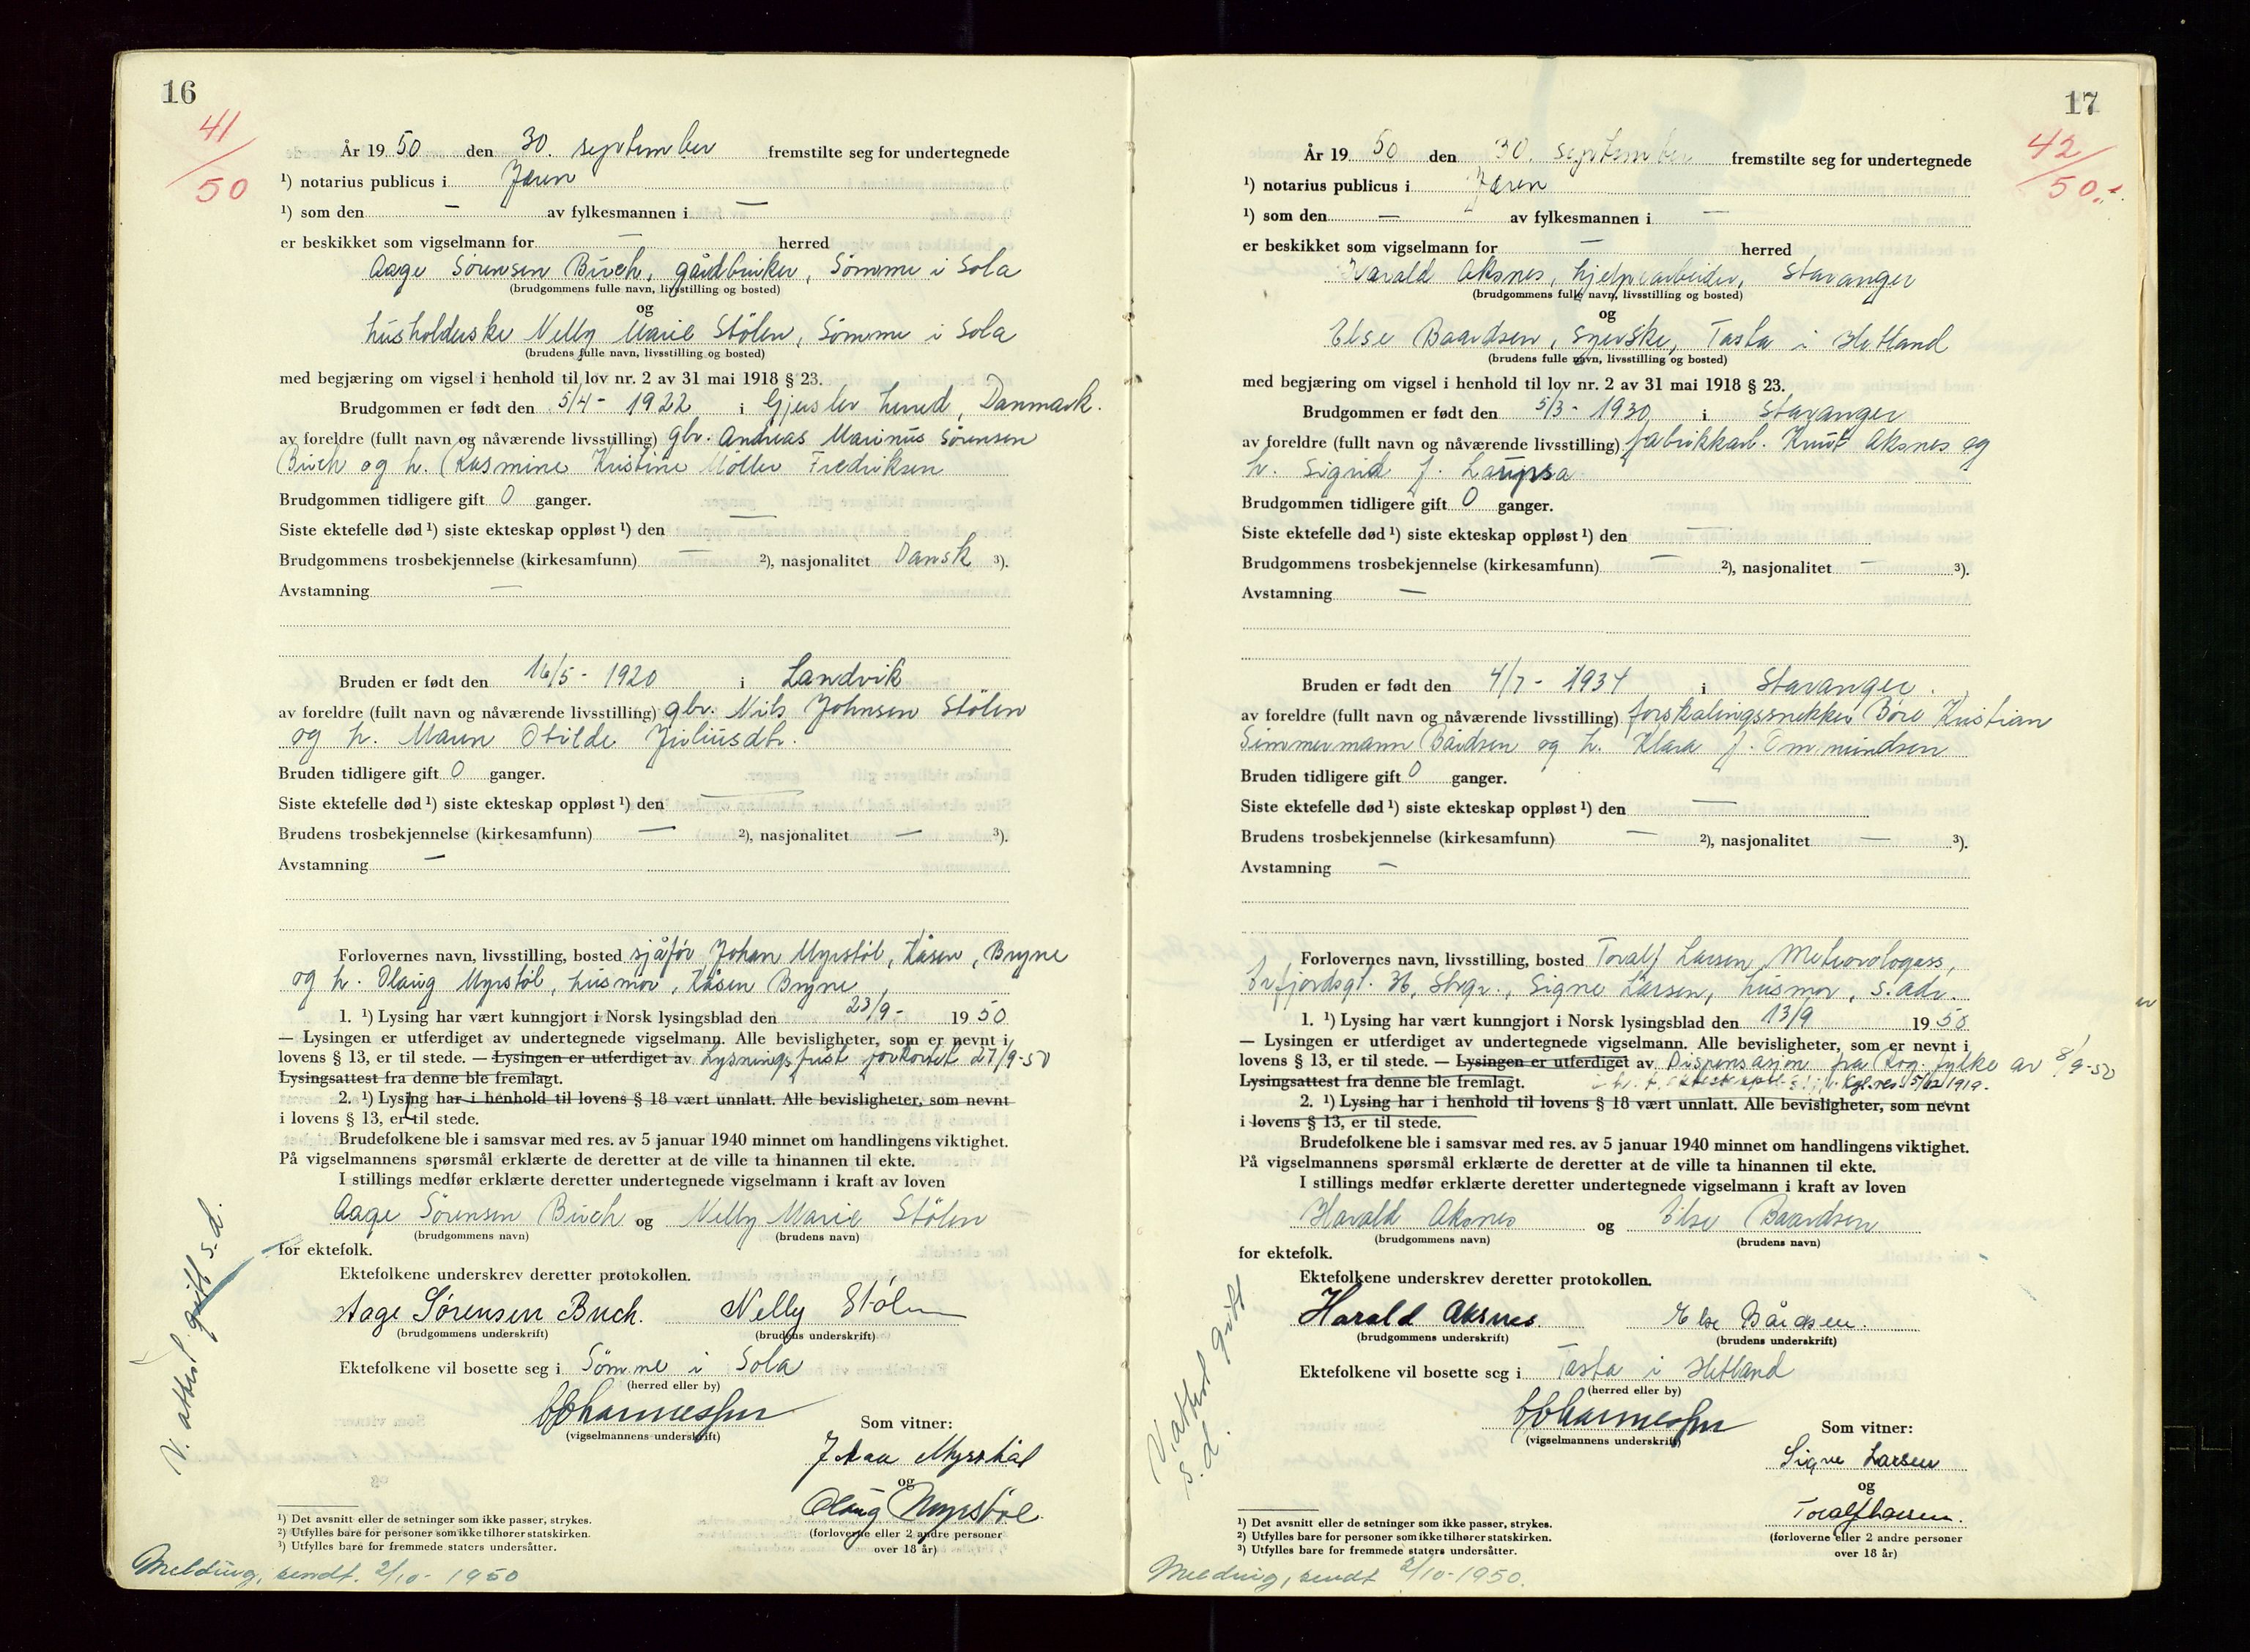 16
41/50
År 1950 den 30. september fremstilte seg for undertegnede
¹) notarius publicus i Jæren
¹) som den — av fylkesmannen i —
er beskikket som vigselmann for — herred
Aage Sørensen Buch, gårdbruker, Sømme i Sola
(brudgommens fulle navn, livsstilling og bosted)
og
husholderske Nelly Marie Stölen, Sömme i Sola
(brudens fulle navn, livsstilling og bosted)
med begjæring om vigsel i henhold til lov nr. 2 av 31 mai 1918 § 23.
Brudgommen er født den 5/4 - 1922 i Gjerslev herred, Danmark.
av foreldre (fullt navn og nåværende livsstilling) gbr. Andreas Marinus Sörensen
Buch og h. Rasmine Kristine Möller Fredriksen
Brudgommen tidligere gift 0 ganger.
Siste ektefelle død ¹) siste ekteskap oppløst ¹) den —
Brudgommens trosbekjennelse (kirkesamfunn) — ²), nasjonalitet Dansk ³).
Avstamning —
Bruden er født den 16/5 - 1920 i Landvik
av foreldre (fullt navn og nåværende livsstilling) gbr. Nils Johnsen Stölen
og h. Maren Otilde Juliusdtr.
Bruden tidligere gift 0 ganger.
Siste ektefelle død ¹) siste ekteskap oppløst ¹) den —
Brudens trosbekjennelse (kirkesamfunn) — ²), nasjonalitet — ³).
Avstamning —
Forlovernes navn, livsstilling, bosted sjåför Johan Myrstöl, Kåsen, Bryne
og h. Olaug Myrstöl, husmor, Kåsen Bryne
1. ¹) Lysing har vært kunngjort i Norsk lysingsblad den 23/9 - 1950
— Lysingen er utferdiget av undertegnede vigselmann. Alle bevisligheter, som er nevnt i
lovens § 13, er til stede. — Lysingen er utferdiget av Lysningsfrist forkortet 27/9-50
Lysingsattest fra denne ble fremlagt.
2. ¹) Lysing har i henhold til lovens § 18 vært unnlatt. Alle bevisligheter, som nevnt
i lovens § 13, er til stede.
Brudefolkene ble i samsvar med res. av 5 januar 1940 minnet om handlingens viktighet.
På vigselmannens spørsmål erklærte de deretter at de ville ta hinannen til ekte.
I stillings medfør erklærte deretter undertegnede vigselmann i kraft av loven
Aage Sörensen Buch og Nelly Marie Stölen
(brudgommens navn) (brudens navn)
for ektefolk.
Ektefolkene underskrev deretter protokollen.
Aage Sørensen Buch. Nelly Stölen
(brudgommens underskrift) (brudens underskrift)
Ektefolkene vil bosette seg i Sömme i Sola
(herred eller by)
(vigselmannens underskrift)
Som vitner:
Johan Myrstöl
og
Olaug Myrstöl.
(forloverne eller 2 andre personer
over 18 år)
V. attest gitt s.d.
¹) Det avsnitt eller de setninger som ikke passer, strykes.
²) Utfylles bare for personer som ikke tilhører statskirken.
³) Utfylles bare for fremmede staters undersåtter.
Melding, sendt. 2/10 - 1950
17
42/50
År 1950 den 30. september fremstilte seg for undertegnede
¹) notarius publicus i Jæren
¹) som den — av fylkesmannen i —
er beskikket som vigselmann for — herred
Harald Aksnes, hjelpearbeider, Stavanger
(brudgommens fulle navn, livsstilling og bosted)
og
Else Baardsen, syerske, Tasta i Hetland
(brudens fulle navn, livsstilling og bosted)
med begjæring om vigsel i henhold til lov nr. 2 av 31 mai 1918 § 23.
Brudgommen er født den 5/3 - 1930 i Stavanger
av foreldre (fullt navn og nåværende livsstilling) fabrikkarb. Knut Aksnes og
h. Sigrid f. Laupsa
Brudgommen tidligere gift 0 ganger.
Siste ektefelle død ¹) siste ekteskap oppløst ¹) den —
Brudgommens trosbekjennelse (kirkesamfunn) — ²), nasjonalitet — ³).
Avstamning —
Bruden er født den 4/7 - 1934 i Stavanger.
av foreldre (fullt navn og nåværende livsstilling) forskalingssnekker Bore Kristian
Simmermann Bårdsen og h. Klara f. Ommundsen
Bruden tidligere gift 0 ganger.
Siste ektefelle død ¹) siste ekteskap oppløst ¹) den —
Brudens trosbekjennelse (kirkesamfunn) — ²), nasjonalitet — ³).
Avstamning —
Forlovernes navn, livsstilling, bosted Toralf Larsen, Meteorologass,
Erfjordsgt. 36, Stvgr., Signe Larsen, husmor, s. adr.
1. ¹) Lysing har vært kunngjort i Norsk lysingsblad den 13/9 1950
— Lysingen er utferdiget av undertegnede vigselmann. Alle bevisligheter, som er nevnt i
lovens § 13, er til stede. — Lysingen er utferdiget av Dispensasjon fra Rog. fylke av 8/9-50
Lysingsattest fra denne ble fremlagt. Kgl. res. 5/12 1919.
2. ¹) Lysing har i henhold til lovens § 18 vært unnlatt. Alle bevisligheter, som nevnt
i lovens § 13, er til stede.
Brudefolkene ble i samsvar med res. av 5 januar 1940 minnet om handlingens viktighet.
På vigselmannens spørsmål erklærte de deretter at de ville ta hinannen til ekte.
I stillings medfør erklærte deretter undertegnede vigselmann i kraft av loven
Harald Aksnes og Else Baardsen
(brudgommens navn) (brudens navn)
for ektefolk.
Ektefolkene underskrev deretter protokollen.
Harald Aksnes Else Bårdsen.
(brudgommens underskrift) (brudens underskrift)
Ektefolkene vil bosette seg i Tasta i Hetland
(herred eller by)
(vigselmannens underskrift)
Som vitner:
Signe Larsen
og
Toralf Larsen.
(forloverne eller 2 andre personer
over 18 år)
V. attest gitt
s.d.
¹) Det avsnitt eller de setninger som ikke passer, strykes.
²) Utfylles bare for personer som ikke tilhører statskirken.
³) Utfylles bare for fremmede staters undersåtter.
Melding, sendt 2/10-1950.